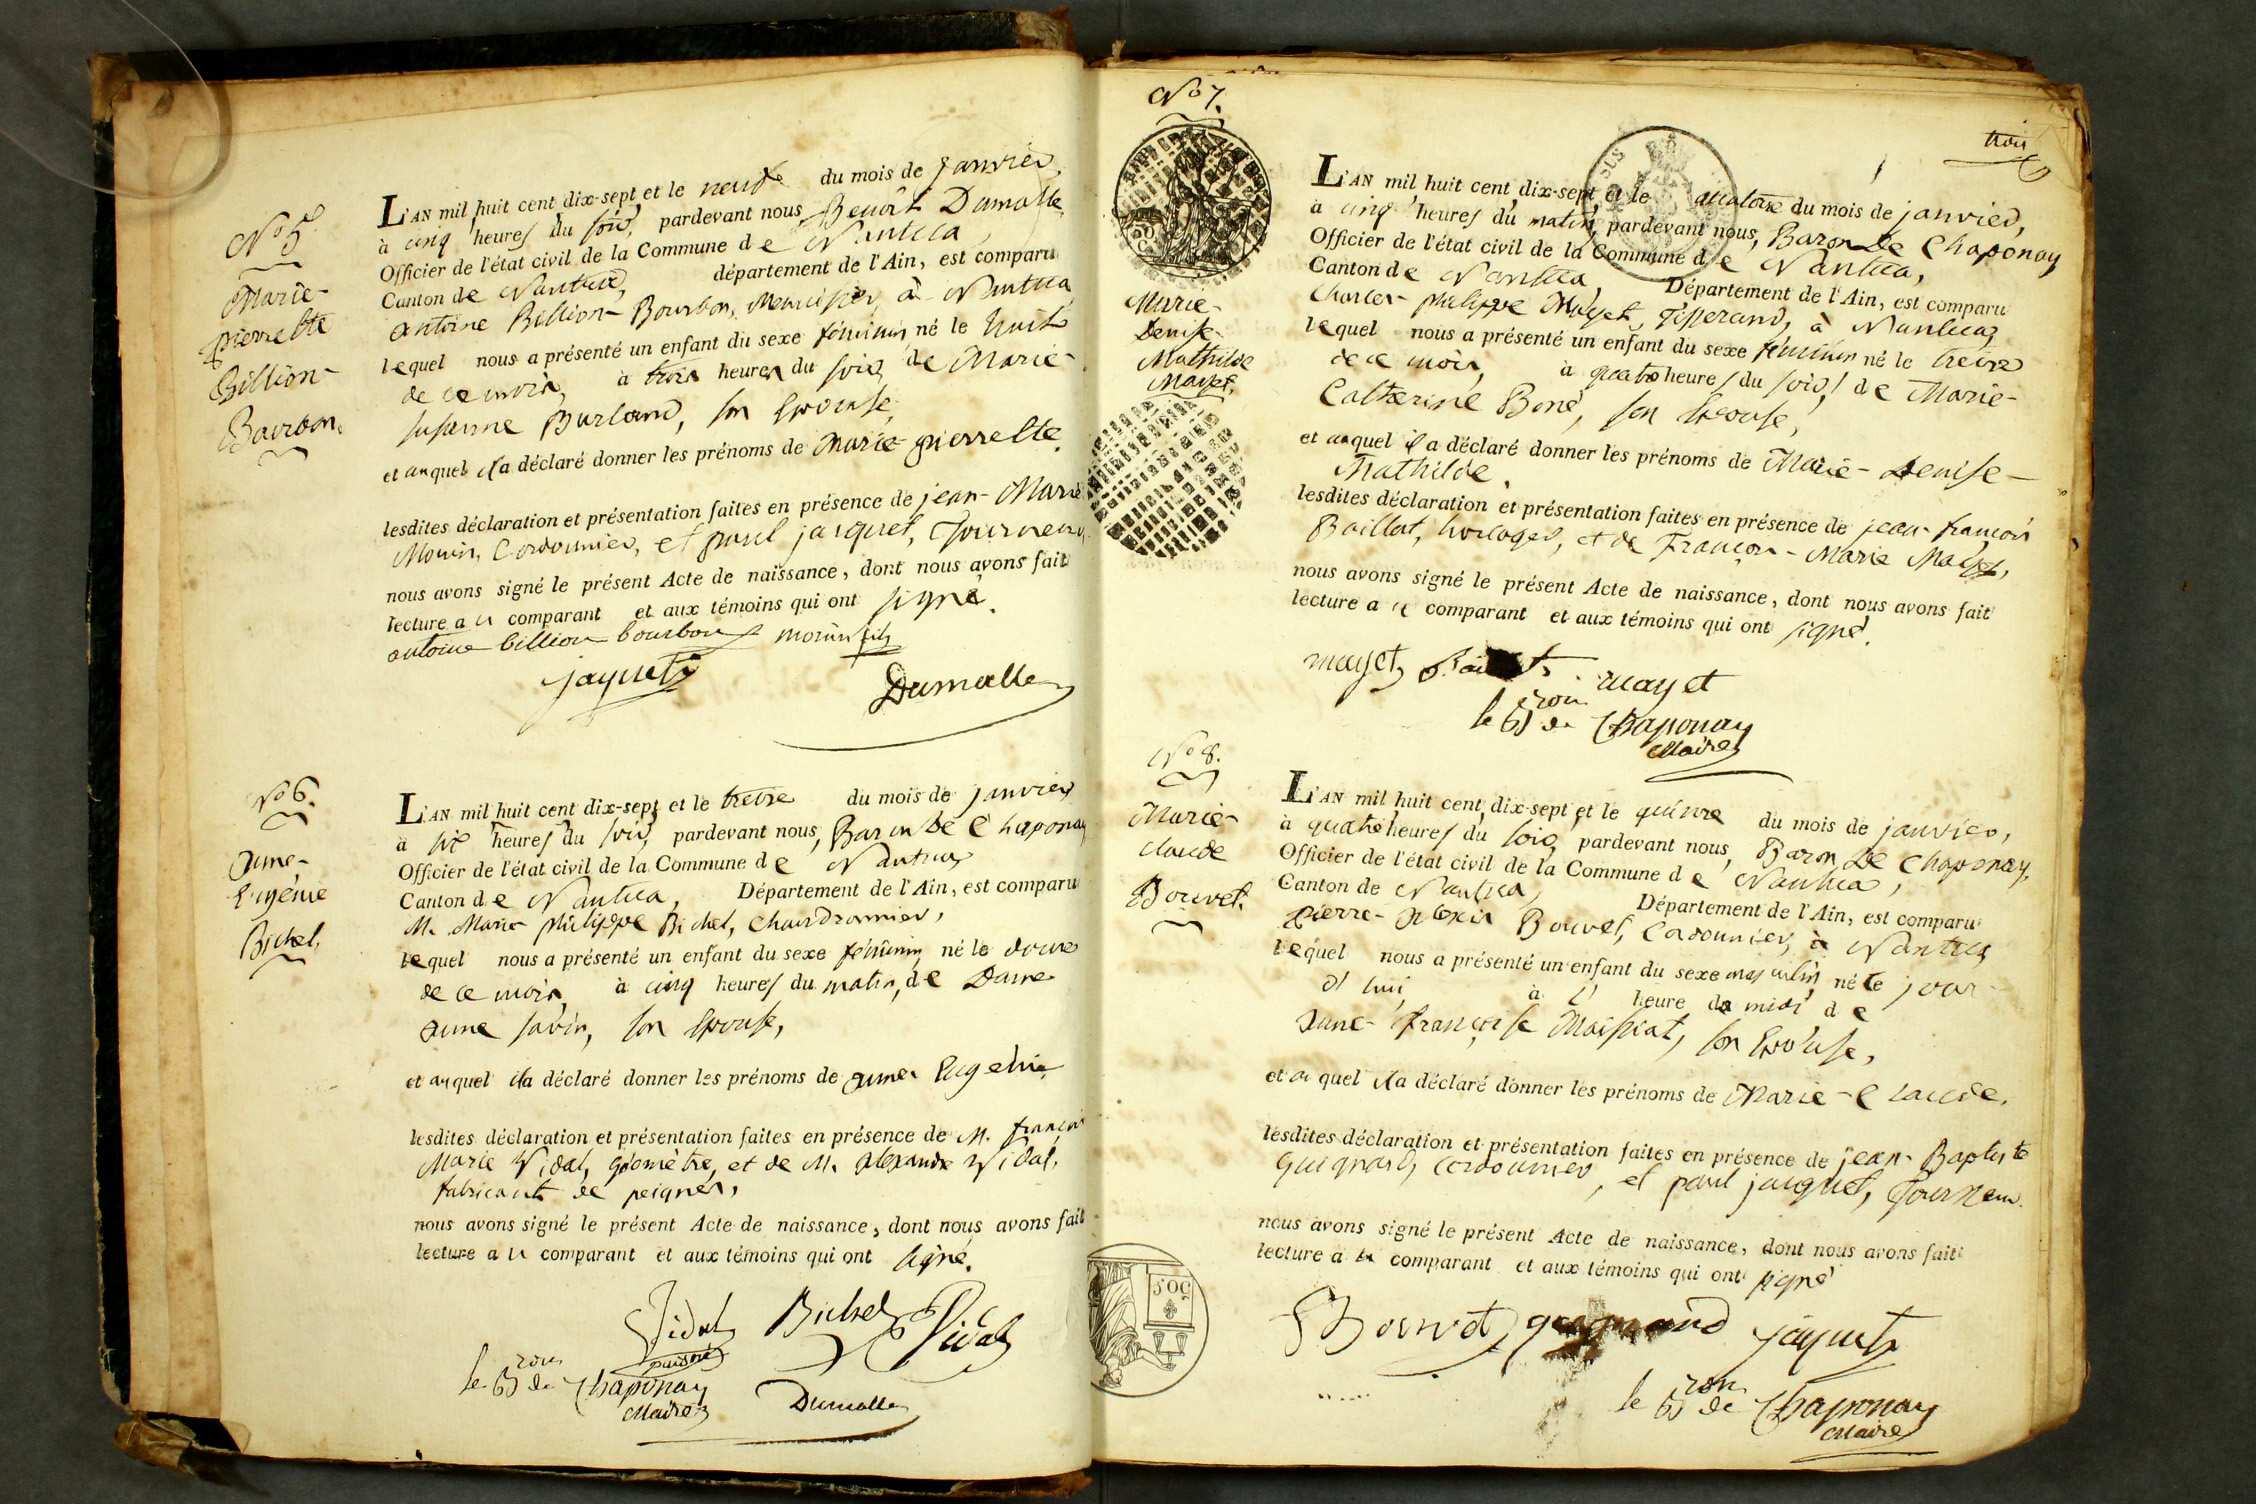 No 5.
Marie-
pierrette
Billion-
Bourbon.
L'AN mil huit cent dix-sept et le neuf du mois de janvier,
à cinq heures du soir, pardevant nous Benoit Dumolle
Officier de l'état civil de la Commune de Nantua,
Canton de Nantua, département de l'Ain, est comparu
antoine Billion-Bourbon, Menuisier, à Nantua
lequel nous a présenté un enfant du sexe féminin né le huit
de ce mois, à trois heures du soir, de Marie-
susanne Burland, son Epouse,
et auquel il a déclaré donner les prénoms de Marie-pierrette.
lesdites déclaration et présentation faites en présence de jean-Marie
Morin, Cordonnier, et paul jacquet, Tourneur,
nous avons signé le présent Acte de naissance, dont nous avons fait
lecture au comparant et aux témoins qui ont signé.
antoine billion bourbon morin fils
jaquet
Dumolle
No 6.
anne-
Eugénie
Bichel,
L'AN mil huit cent dix-sept et le treize du mois de janvier
à six heures du soir, pardevant nous, Baron De Chaponay
Officier de l'état civil de la Commune de Nantua
Canton de Nantua, Département de l'Ain, est comparu
M. Marie philippe Bichel, chaudronnier,
lequel nous a présenté un enfant du sexe féminin, né le douze
de ce mois, à cinq heures du matin, de Dame
anne savin, son Epouse,
et auquel il a déclaré donner les prénoms de anne Eugénie
lesdites déclaration et présentation faites en présence de M. françois
Marie Vidal, géomètre, et de M. alexandre Vidal,
fabricant de peignes,
nous avons signé le présent Acte de naissance, dont nous avons fait
lecture au comparant et aux témoins qui ont signé.
Vidal Bichel Vidal
puisné
le Bron de Chaponay
Maire
Dumolle
trois
No 7.
Marie-
Denise-
Mathilde
Mayet.
L'AN mil huit cent dix-sept et le quatorze du mois de janvier,
à cinq heures du matin, pardevant nous, Baron De Chaponay
Officier de l'état civil de la Commune de Nantua,
Canton de Nantua, Département de l'Ain, est comparu
Charles-philippe Mayet, Tisserand, à Nantua,
lequel nous a présenté un enfant du sexe féminin né le treize
de ce mois, à quatre heures du soir, de Marie-
Catherine Boné, son Epouse,
et auquel il a déclaré donner les prénoms de Marie-Denise-
Mathilde.
lesdites déclaration et présentation faites en présence de jean-françois
Baillat, horloger, et de François-Marie Mayet,
nous avons signé le présent Acte de naissance, dont nous avons fait
lecture au comparant et aux témoins qui ont signé.
mayet mayet
le Bron de Chaponay
Maire
No 8.
Marie-
claude
Bouvet.
L'AN mil huit cent dix-sept et le quinze du mois de janvier,
à quatre heures du soir, pardevant nous, Baron De Chaponay,
Officier de l'état civil de la Commune de Nantua,
Canton de Nantua, Département de l'Ain, est comparu
pierre-alexis Bouvet, Cordonnier, à Nantua
lequel nous a présenté un enfant du sexe masculin, né le jour-
d'hui, à heure de midi de
anne-françoise Maissiat, son Epouse,
et auquel il a déclaré donner les prénoms de Marie-Claude.
lesdites déclaration et présentation faites en présence de jean-Baptiste
guignard, cordonnier, et paul jacquet, Tourneur.
nous avons signé le présent Acte de naissance, dont nous avons fait
lecture au comparant et aux témoins qui ont signé
Bouvet guignard jaquet
le Bron de Chaponay
Maire
50C